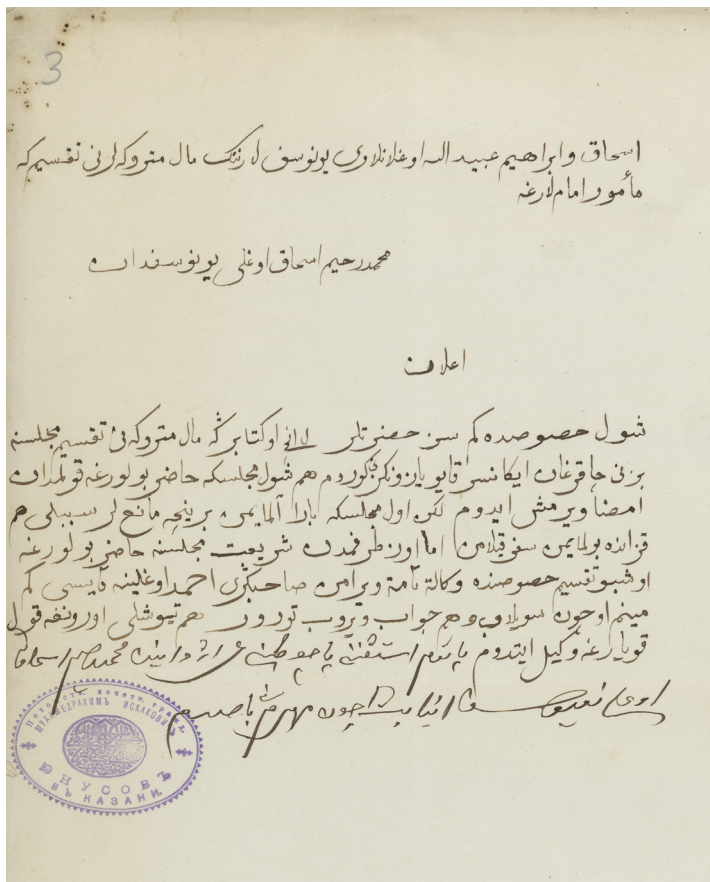 3
اسحاق و ابراهيم عبيد الله اوغلانلاری يونوسف لارننک مال متروکه لرنی تقسيم که
مأمور امام لارغه
محمد رحيم اسحاق اوغلی يونوسفدان
اعلان
شول خصوصده کم سز حضرتلر اوکتابرگه مال متروکه نی تقسيم مجلسنه
بزنی چاقرغان هم شول مجلسکه حاضر بولورغه قولمدان
امضا ويرمش ايدوم لکن اول مجلسکه بارا آلمايمن برنچه مانع لر سببلی هم
قزانده بولمايمن سفر قيلامن اما اوز طرفمدن شريعت مجلسنه حاضر بولورغه
اوشبو تقسيم خصوصنده وکالة تامة ويرامن صاحبکری احمد اوغلينه قايسی کم
مينم اوچون سويلاب وهم جواب ويروب تورور هم تيوشلی اورونغه قول
قويارغه وکيل ايتدوم محمد رحيم اسحاق
اوغلی
Потомств. почетн. гражд.
МУХАМЕДРАХИМЪ ИСХАКОВИЧЪ
ЮНУСОВЪ
ВЪ КАЗАНИ